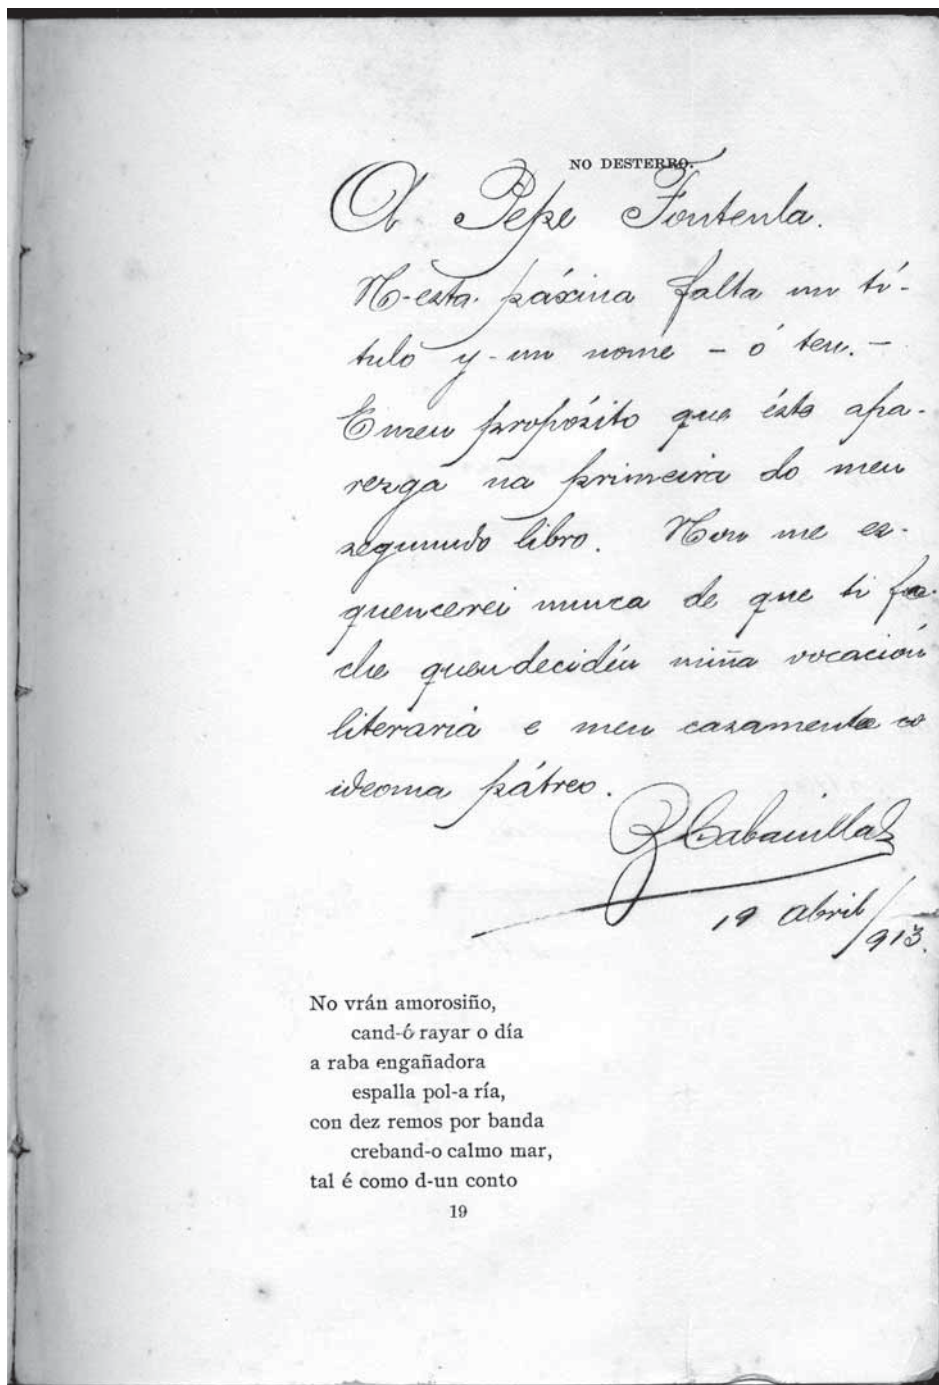 NO DESTERRO.
A Pepe Fontenla.
N-esta páxina falta un tí-
tulo y-un nome - ó teu. -
E meu propósito que ésto apa-
rezga na primeira do meu
segundo libro. Non me es-
quencerei nunca de que ti fo-
che quen decidéu miña vocación
literaria e meu casamento co
ideoma pátreo.
R Cabanillas
19 Abril/913.
No vrán amorosiño,
cand-ó rayar o día
a raba engañadora
espalla pol-a ría,
con dez remos por banda
creband-o calmo mar,
tal é como d-un conto
19